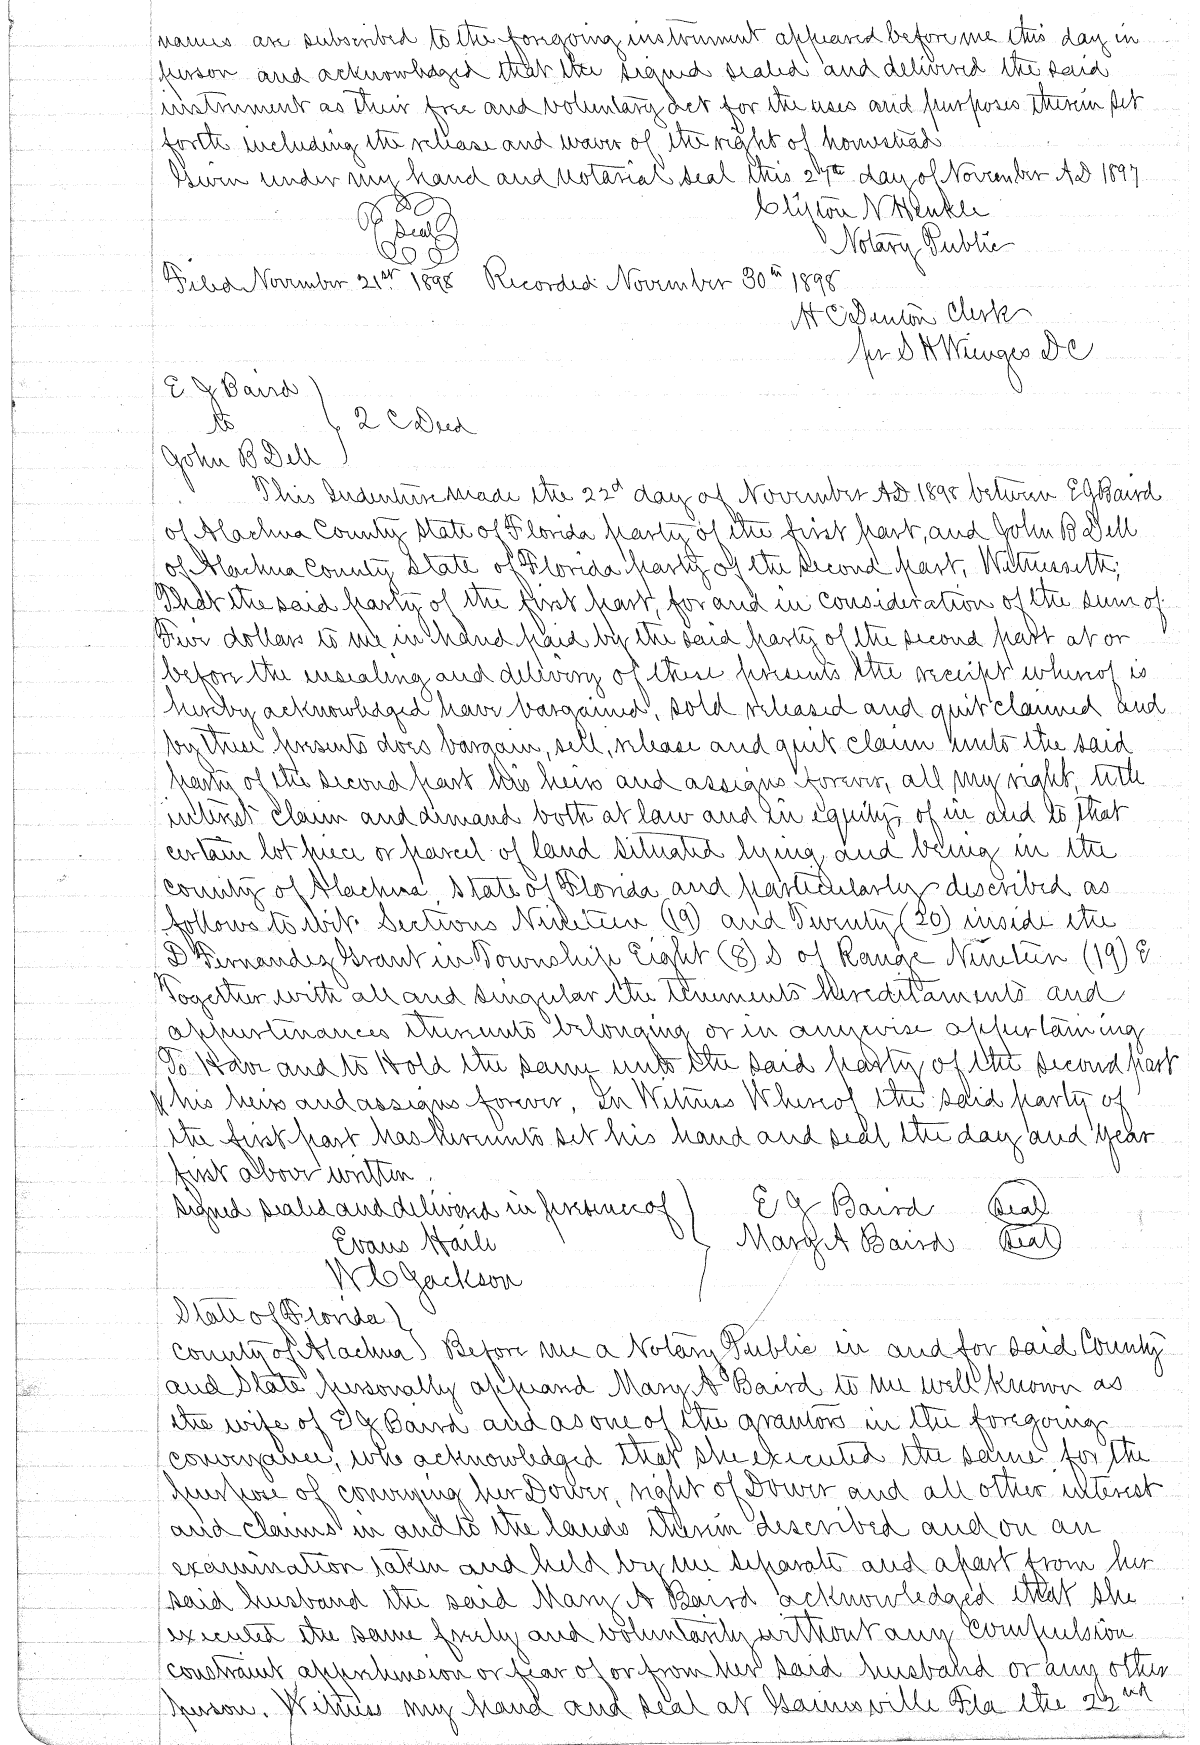 names are subscribed to the foregoing instrument appeared before me this day in
person and acknowledged that the signed sealed and delivered the said
instrument as their free and voluntary act for the uses and purposes therein set
forth including the release and waver of the right of homestead
Given under my hand and notarial seal this 27th day of November A.D 1897
Seal
Clifton N Henkle
Notary Public
Filed November 21st 1898 Recorded November 30th 1898
H C Denton Clerk
pr S H Wienges D C
E J Baird
to
John B Dell
2 C Deed
This Indenture made the 22d day of November A.D. 1898 between E J Baird
of Alachua County State of Florida party of the first part, and John B Dell
of Alachua County State of Florida party of the second part, Witnesseth;
That the said party of the first part, for and in consideration of the sum of
Five dollars to me in hand paid by the said party of the second part at or
before the ensealing and delivery of these presents the receipt whereof is
hereby acknowledged have bargained, sold released and quit claimed and
by these presents does bargain, sell, release and quit claim unto the said
party of the second part his heirs and assigns forever, all my right, title
interest claim and demand both at law and in equity, of in and to that
certain lot piece or parcel of land situated lying and being in the
county of Alachua State of Florida and particularly described as
follows to wit. Sections Nineteen (19) and Twenty (20) inside the
D Fernandez Grant in Township Eight (8) S of Range Nineteen (19) E
Together with all and singular the tenements hereditaments and
appurtenances thereunto belonging or in anywise appertaining
To Have and to Hold the same unto the said party of the second part
his heirs and assigns forever, In Witness Whereof the said party of
the first part has hereunto set his hand and seal the day and year
first above written.
Signed sealed and delivered in presence of E J Baird Seal
Evans Haile Mary A Baird Seal
W C Jackson
State of Florida
County of Alachua Before me a Notary Public in and for said County
and State personally appeared Mary A Baird to me well known as
the wife of E J Baird and as one of the grantors in the foregoing
conveyance, who acknowledged that she executed the same for the
purpose of conveying her Dower, right of Dower and all other interest
and claims in and to the lands therein described and on an
examination taken and held by me separate and apart from her
said husband the said Mary A Baird acknowledged that she
executed the same freely and voluntarily without any compulsion
constraint apprehension or fear of or from her said husband or any other
person. Witness my hand and seal at Gainsville Fla the 22nd